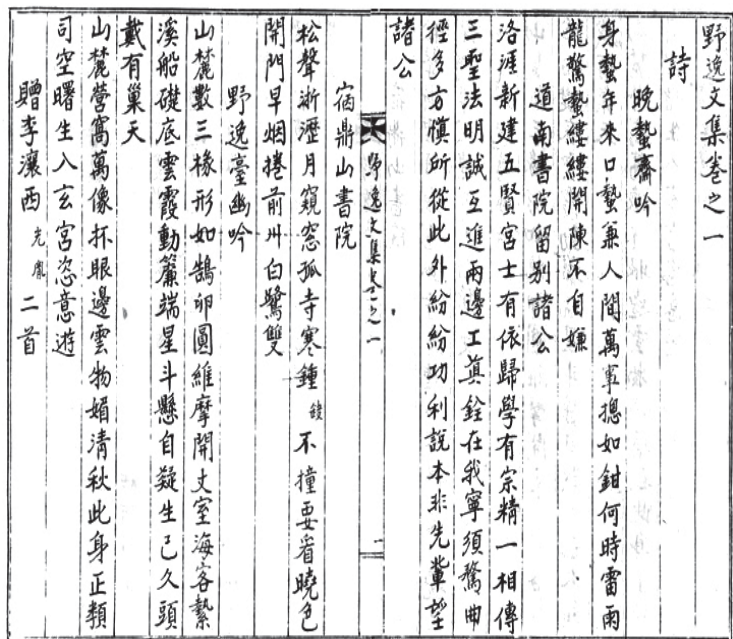 野逸文集卷之一
詩
晩蟄齋吟
身蟄年來口蟄兼人間萬事摠如鉗何時雷雨
龍驚蟄縷縷開陳不自嫌
道南書院留別諸公
洛涯新建五賢宮士有依歸學有宗精一相傳
三聖法明誠互進兩邊工眞銓在我寧須騖曲
徑多方愼所從此外紛紛功利說本非先輩望
諸公
野逸文集卷之一
一
宿鼎山書院
松聲淅瀝月窺窓孤寺寒鍾 不撞要看曉色
開門早烟捲前州白鷺雙
野逸臺幽吟
山麓數三椽形如鵠卵圓維摩開丈室海客繫
溪船礎底雲霞動簷端星斗懸自疑生已久頭
戴有巢天
山麓營窩萬像抔眼邊雲物媚淸秋此身正類
司空曙生入玄宮恣意遊
贈李瀼西光胤二首